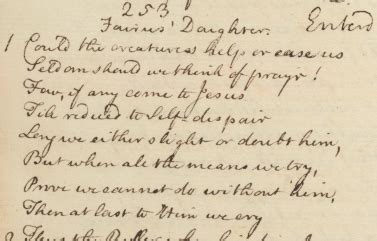 253
Jairus' Daughter. Enterd
1 Could the creatures help or ease us
Seldom should we think of prayr!
Few, if any come to Jesus
Till reduced to Self-despair
Long we either slight or doubt him,
But when all the means we try,
Prove we cannot do without him,
Then at last to Him we cry
2 Thus the Ruler